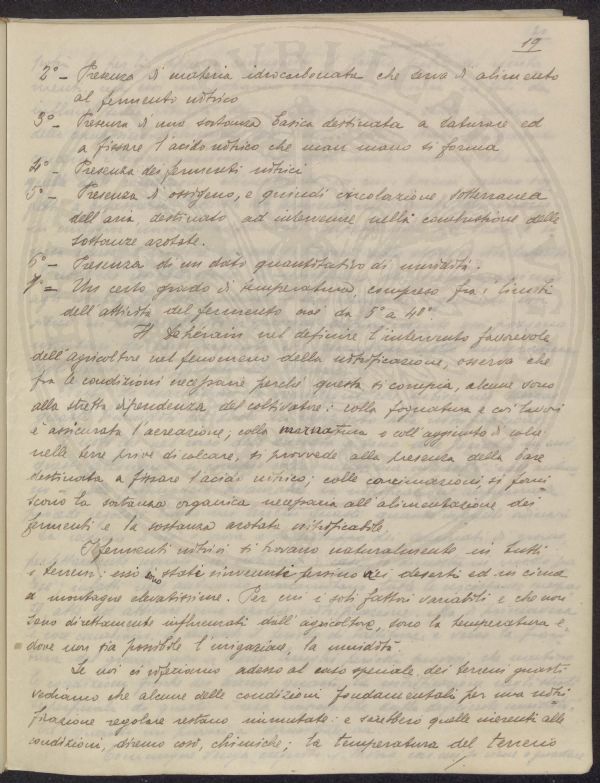 19
2° - Presenza di materia idrocarbonata che serva di alimento
al fermento nitrico
3° - Presenza di una sostanza basica destinata a saturare ed
a fissare l'acido nitrico che man mano si forma
4° - Presenza dei fermenti nitrici
5° - Presenza di ossigeno, e quindi circolazione sotterranea
dell'aria destinata ad intervenire nella combustione delle
sostanze azotate.
6° - Presenza di un dato quantitativo di umidità.
7° = Un certo grado di temperatura, compreso fra i limiti
dell'attività del fermento cioè da 5° a 48°.
Il Dehérain nel definire l'intervento favorevole
dell'agricoltore nel fenomeno della nitrificazione, osserva che
fra le condizioni necessarie perché questa si compia, alcune sono
alla stretta dipendenza del coltivatore: colla fognatura e coi lavori
è assicurata l'aereazione; colla marnatura o coll'aggiunta di calce
nelle terre prive di calcare, si provvede alla presenza della base
destinata a fissare l'acido nitrico; colle concimazioni si forni
scono la sostanza organica necessaria all'alimentazione dei
fermenti e la sostanza azotata nitrificabile.
I fermenti nitrici si trovano naturalmente in tutti
i terreni: essi sono stati rinvenuti persino nei deserti ed in cima
a montagne elevatissime. Per cui i soli fattori variabili e che non
sono direttamente influenzati dall'agricoltore, sono la temperatura e,
dove non sia possibile l'irrigazione, la umidità.
Se noi ci riferiamo adesso al caso speciale dei terreni guasti
vediamo che alcune delle condizioni fondamentali per una nitri
ficazione regolare restano immutate: e sarebbero quelle inerenti alle
condizioni, diremo così, chimiche; la temperatura del terreno